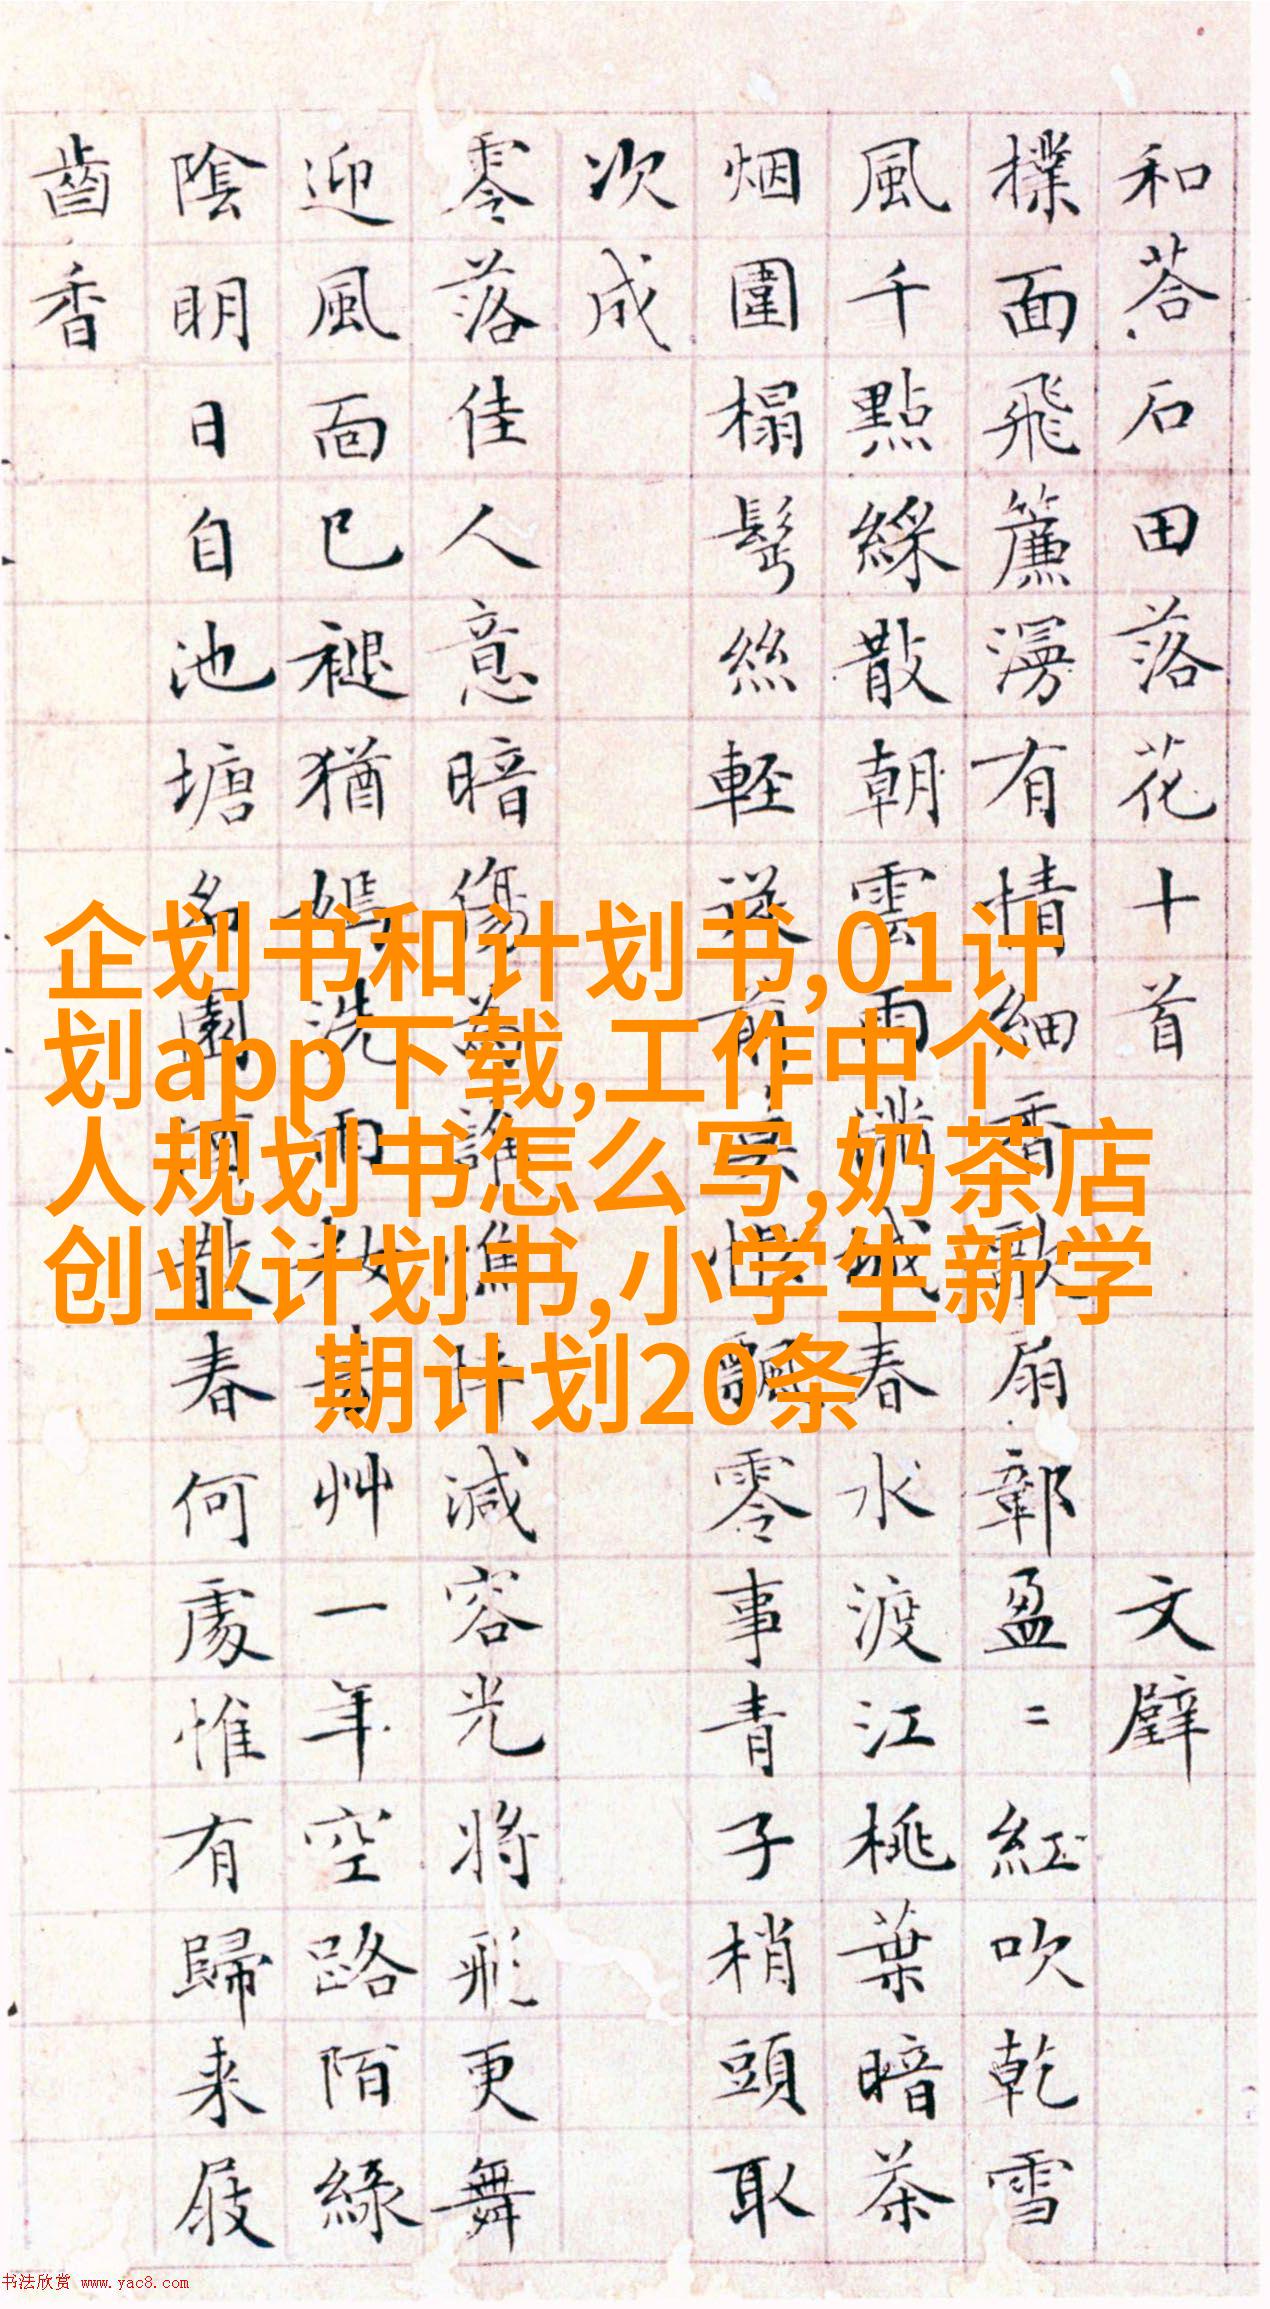 和荅石田落花十首 文璧
撲面飛簾漫有情細香歌扇鄣盈二紅吹乾雪
風千點綵散朝雲雨滿城春水渡江桃葉暗茶
烟圍榻髩絲輕送前共惜飄零事青子梢頭取
次成
零落佳人意暗傷為誰憔悴減容光將飛更舞
迎風面已褪猶嫣洗雨糚芳艸一年空路陌綠
陰明日自池塘名園酒散春何處惟有歸来屐
齒香
企划书和计划书,01计
划app下载,工作中个
人规划书怎么写,奶茶店
创业计划书,小学生新学
期计划20条
书法欣赏 www.yac8.com